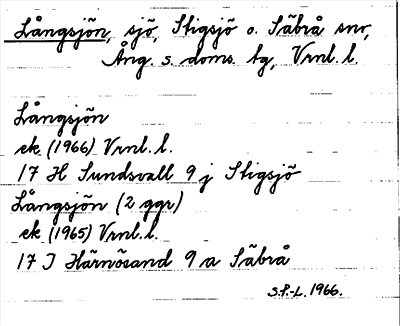 Långsjön, sjö, Stigsjö o. Säbrå snr,
Ång. s. doms. tg, Vrnl. l.
Långsjön
ek (1966) Vrnl. l.
17 H Sundsvall 9 j Stigsjö
Långsjön (2 ggr)
ek (1965) Vrnl. l.
17 I Härnösand 9 a Säbrå
S.P.-L. 1966.